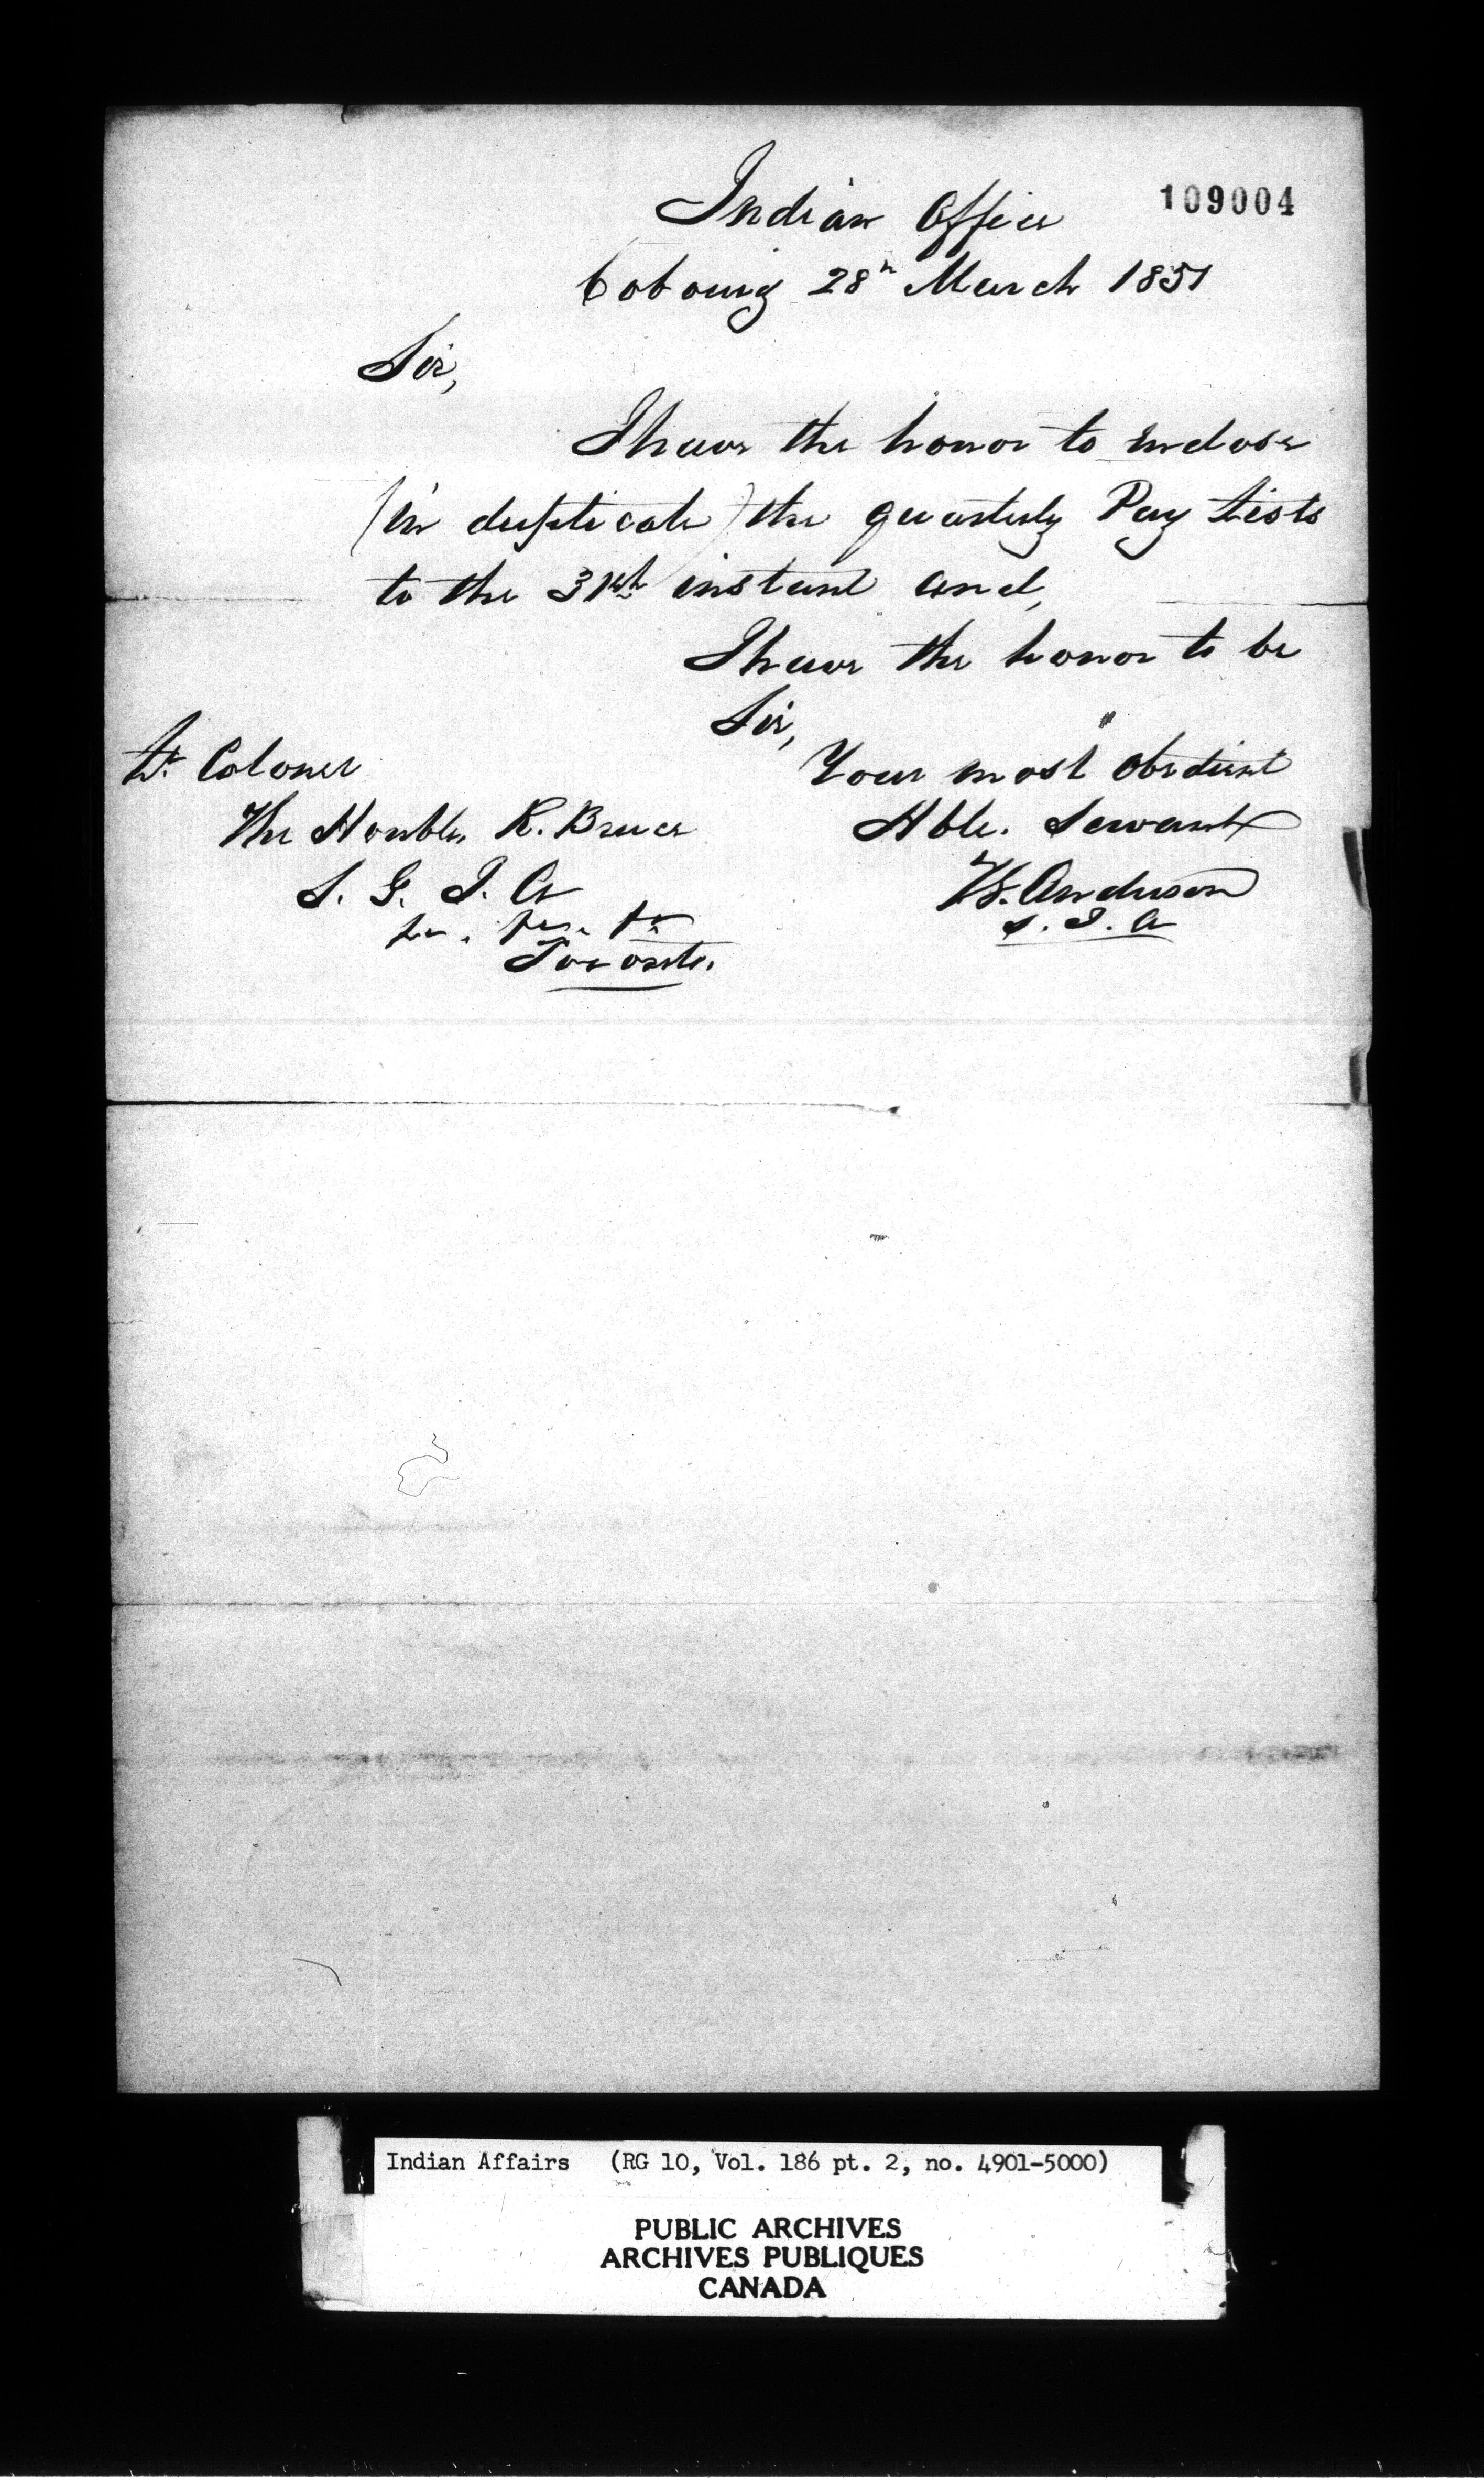 109004
Indian Office
Cobourg 28h March 1851
Sir,
I have the honor to enclose
(in duplicate) the quarterly Pay Lists
to the 31st instant and,
I have the honor to be
Sir,
Your most obedient
Hble. Servant
T. G. Anderson
S. I. A
Lt. Colonel
The Honble. R. Bruce
S. G. I. A
Toronto.
Indian Affairs (RG 10, Vol. 186 pt. 2, no. 4901-5000)
PUBLIC ARCHIVES
ARCHIVES PUBLIQUES
CANADA